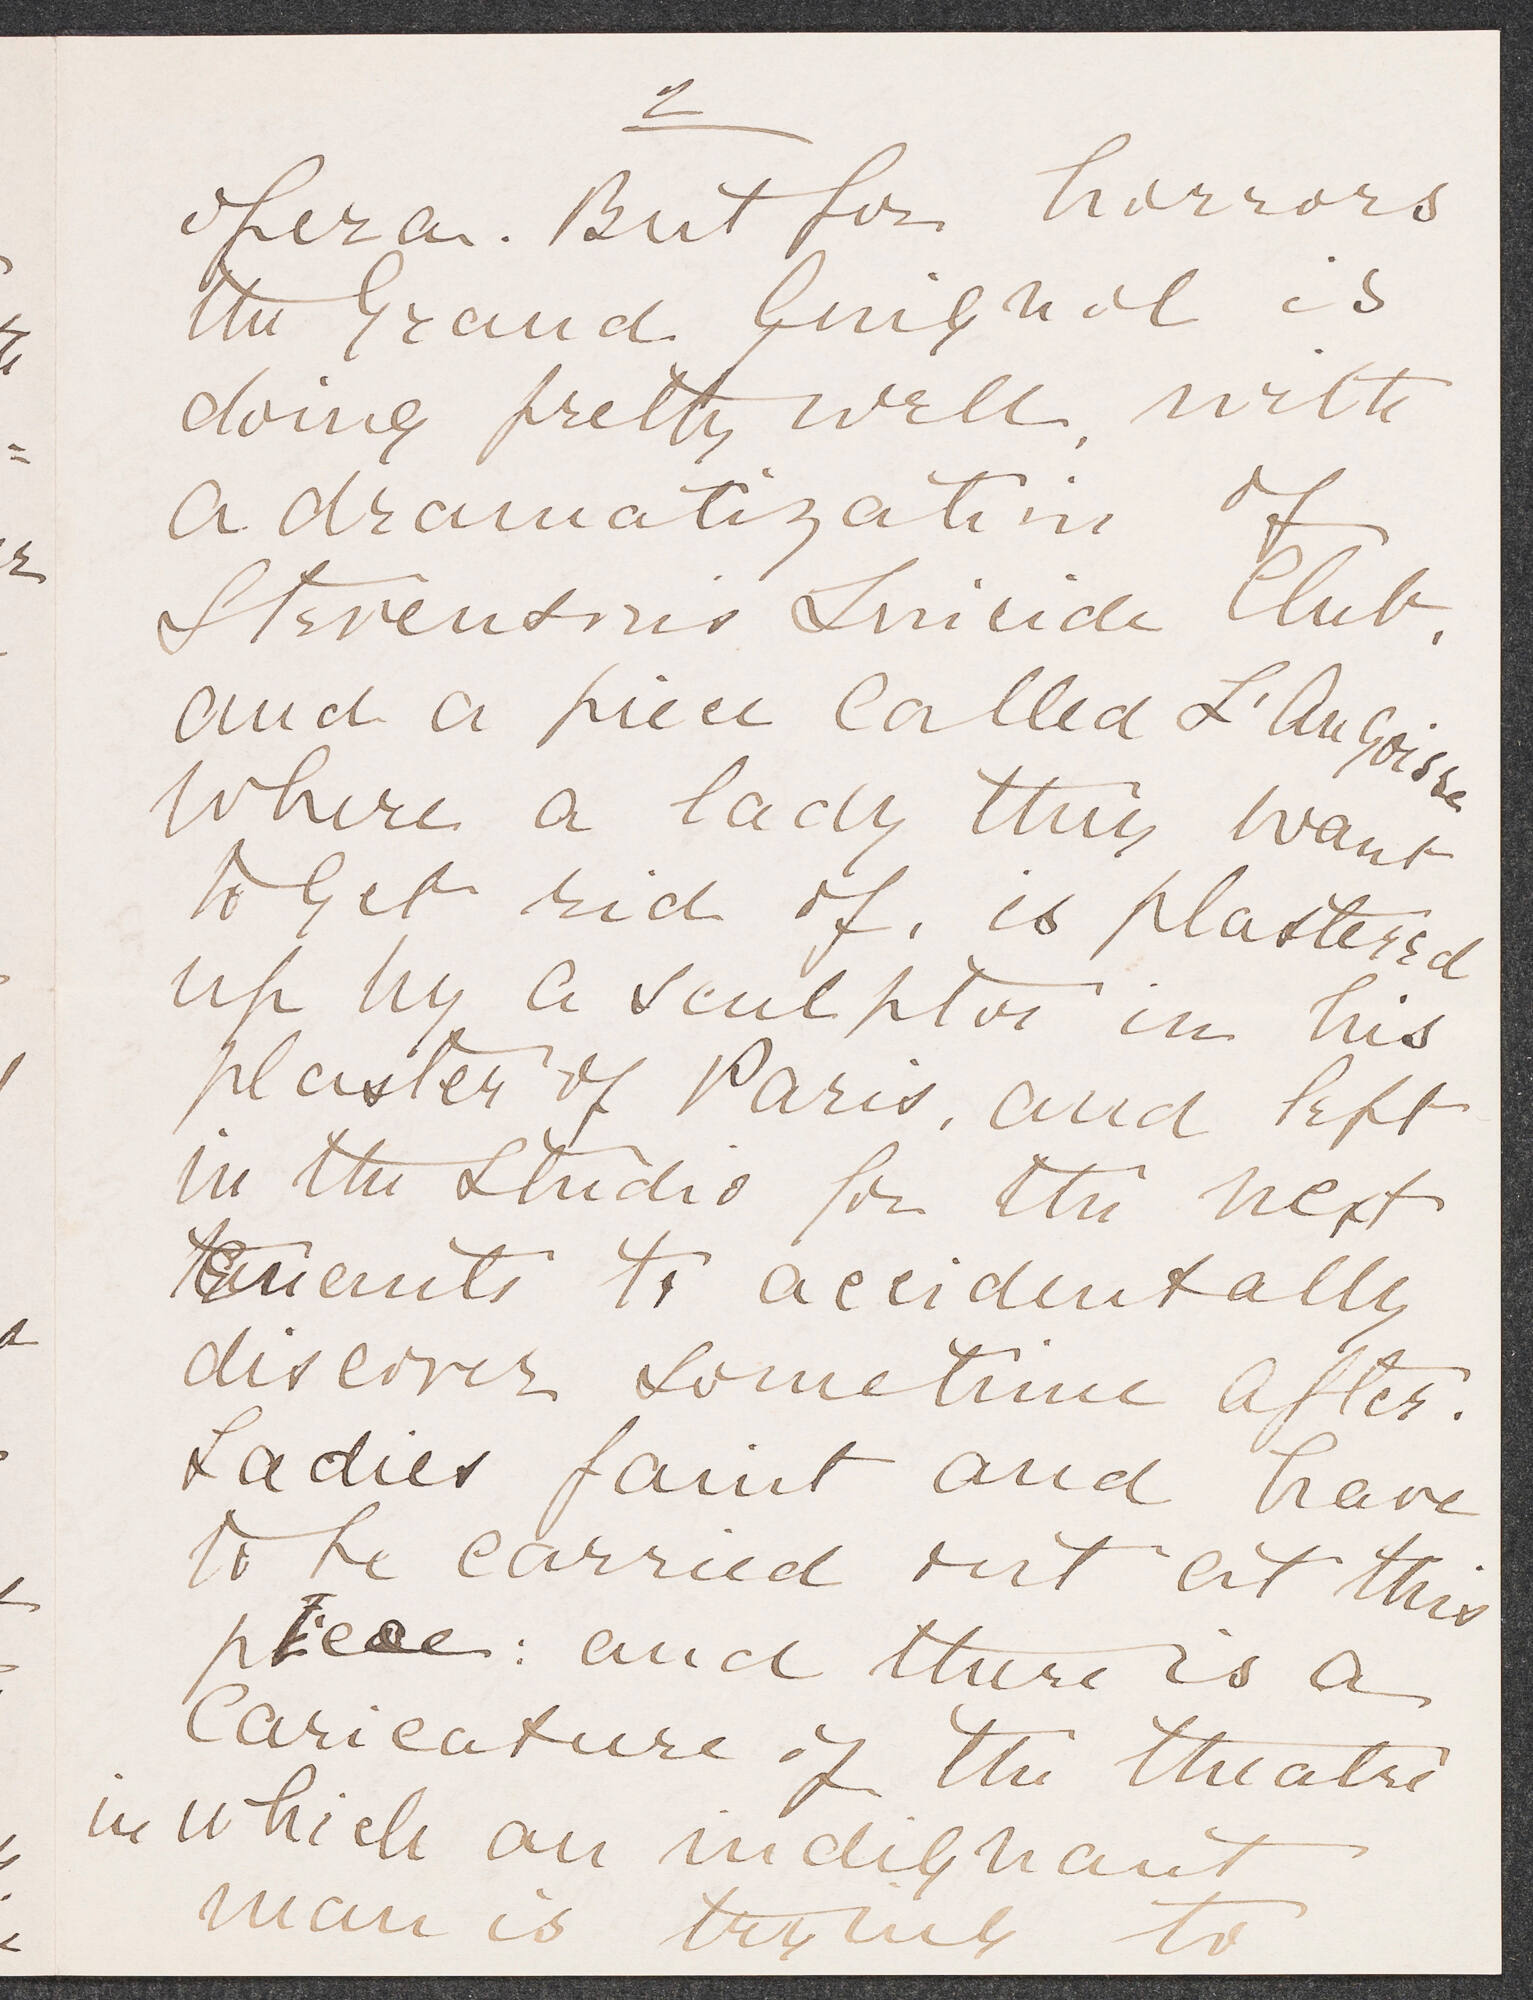 2
opera. But for horrors
the Grand Guignol is
doing pretty well, with
a dramatization of
Stevenson's Suicide Club,
and a piece called L'Angoisse
where a lady they want
to get rid of, is plastered
up by a sculptor in his
plaster of Paris, and left
in the studio for the next
tenants to accidentally
discover sometime after.
Ladies faint and have
to be carried out at this
piece: and there is a
Caricature of the theatre
in which an indignant
man is trying to